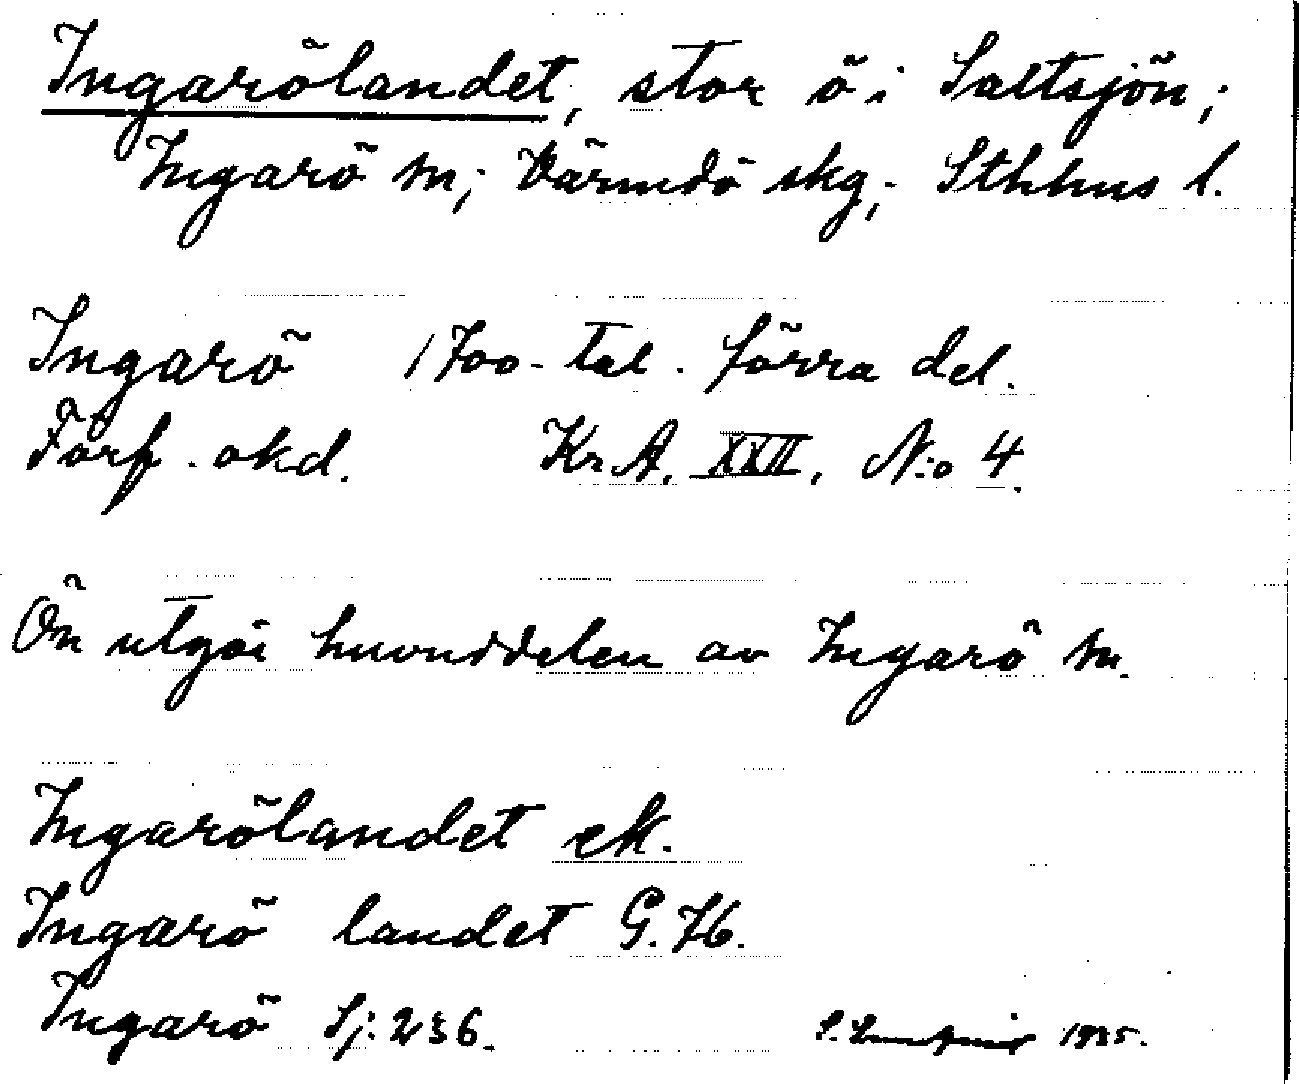 Ingarölandet, stor ö i Saltsjön;
Ingarö sn; Värmdö skg; Sthlms l.
Ingarö 1700-tal. förra del.
Förf. okd. Kr. A. XXII, N:o 4.
Ön utgör huvuddelen av Ingarö sn.
Ingarölandet ek.
Ingarö landet G.K.
Ingarö Sj: 236. 1935.